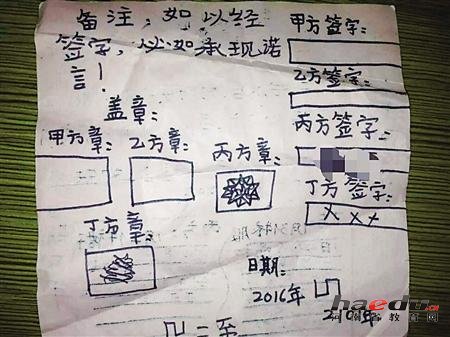 备注：如以经
签字，必如承现诺
言！
甲方签字：
乙方签字：
丙方签字：
丁方签字：
×××
盖章：
甲方章：
乙方章：
丙方章：
丁方章：
日期：
2016年
haedu.cn
河南省教育网